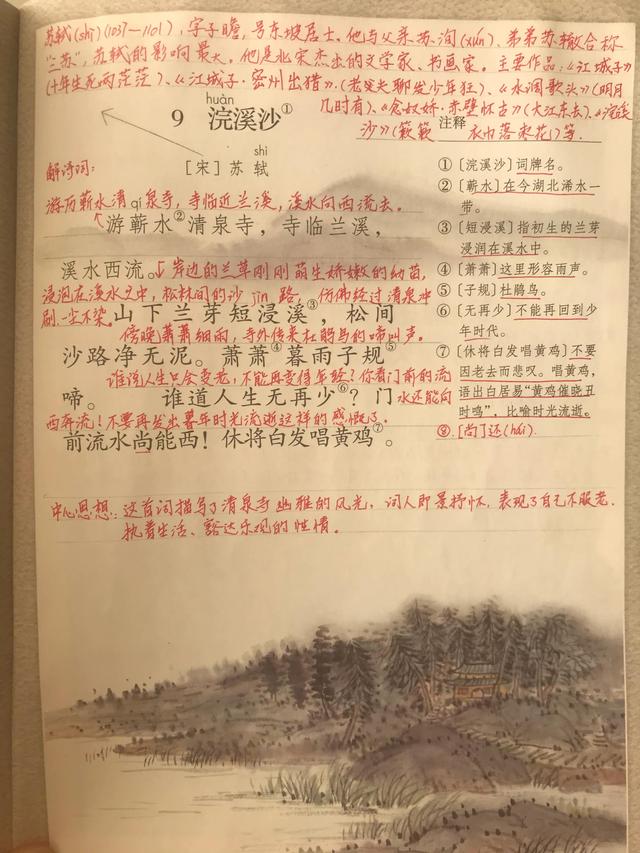 苏轼(shì)(1037—1101),字子瞻,号东坡居士。他与父亲苏洵(xún)、弟弟苏辙合称
"三苏",苏轼的影响最大。他是北宋杰出的文学家、书画家。主要作品:《江城子》
(十年生死两茫茫)、《江城子·密州出猎》(老夫聊发少年狂)、《水调歌头》(明月
几时有)、《念奴娇·赤壁怀古》(大江东去)、《浣溪
沙》(簌簌衣巾落枣花)等.
huàn
9 浣溪沙①
shì
[宋]苏轼
解诗词:
游历蕲水清qi泉寺,寺临近兰溪,溪水向西流去。
游蕲水②清泉寺,寺临兰溪,
溪水西流。岸边的兰草刚刚萌生娇嫩的幼苗,
浸泡在溪水之中,松林间的沙jin路,仿佛经过清泉冲
刷,一尘不染。山下兰芽短浸溪③,松间
傍晚萧萧细雨,寺外传来杜鹃鸟的啼叫声。
沙路净无泥。萧萧④暮雨子规⑤
谁说人生只会变老,不能再变得年轻?你看门前的流
啼。 谁道人生无再少⑥?门
水还能向
西奔流!不要再发出暮年时光流逝这样的感慨了。
前流水尚能西!休将白发唱黄鸡⑦。
注释
①〔浣溪沙〕词牌名。
②〔蕲水〕在今湖北浠水一
带。
③〔短浸溪〕指初生的兰芽
浸润在溪水中。
④〔萧萧〕这里形容雨声。
⑤〔子规〕杜鹃鸟。
⑥〔无再少〕不能再回到少
年时代。
⑦〔休将白发唱黄鸡〕不要
因老去而悲叹。唱黄鸡,
语出白居易"黄鸡催晓丑
时鸣",比喻时光流逝。
⑧[尚]还(hái).
中心思想:这首词描写了清泉寺幽雅的风光,词人即景抒怀,表现了自己不服老、
执着生活、豁达乐观的性情。